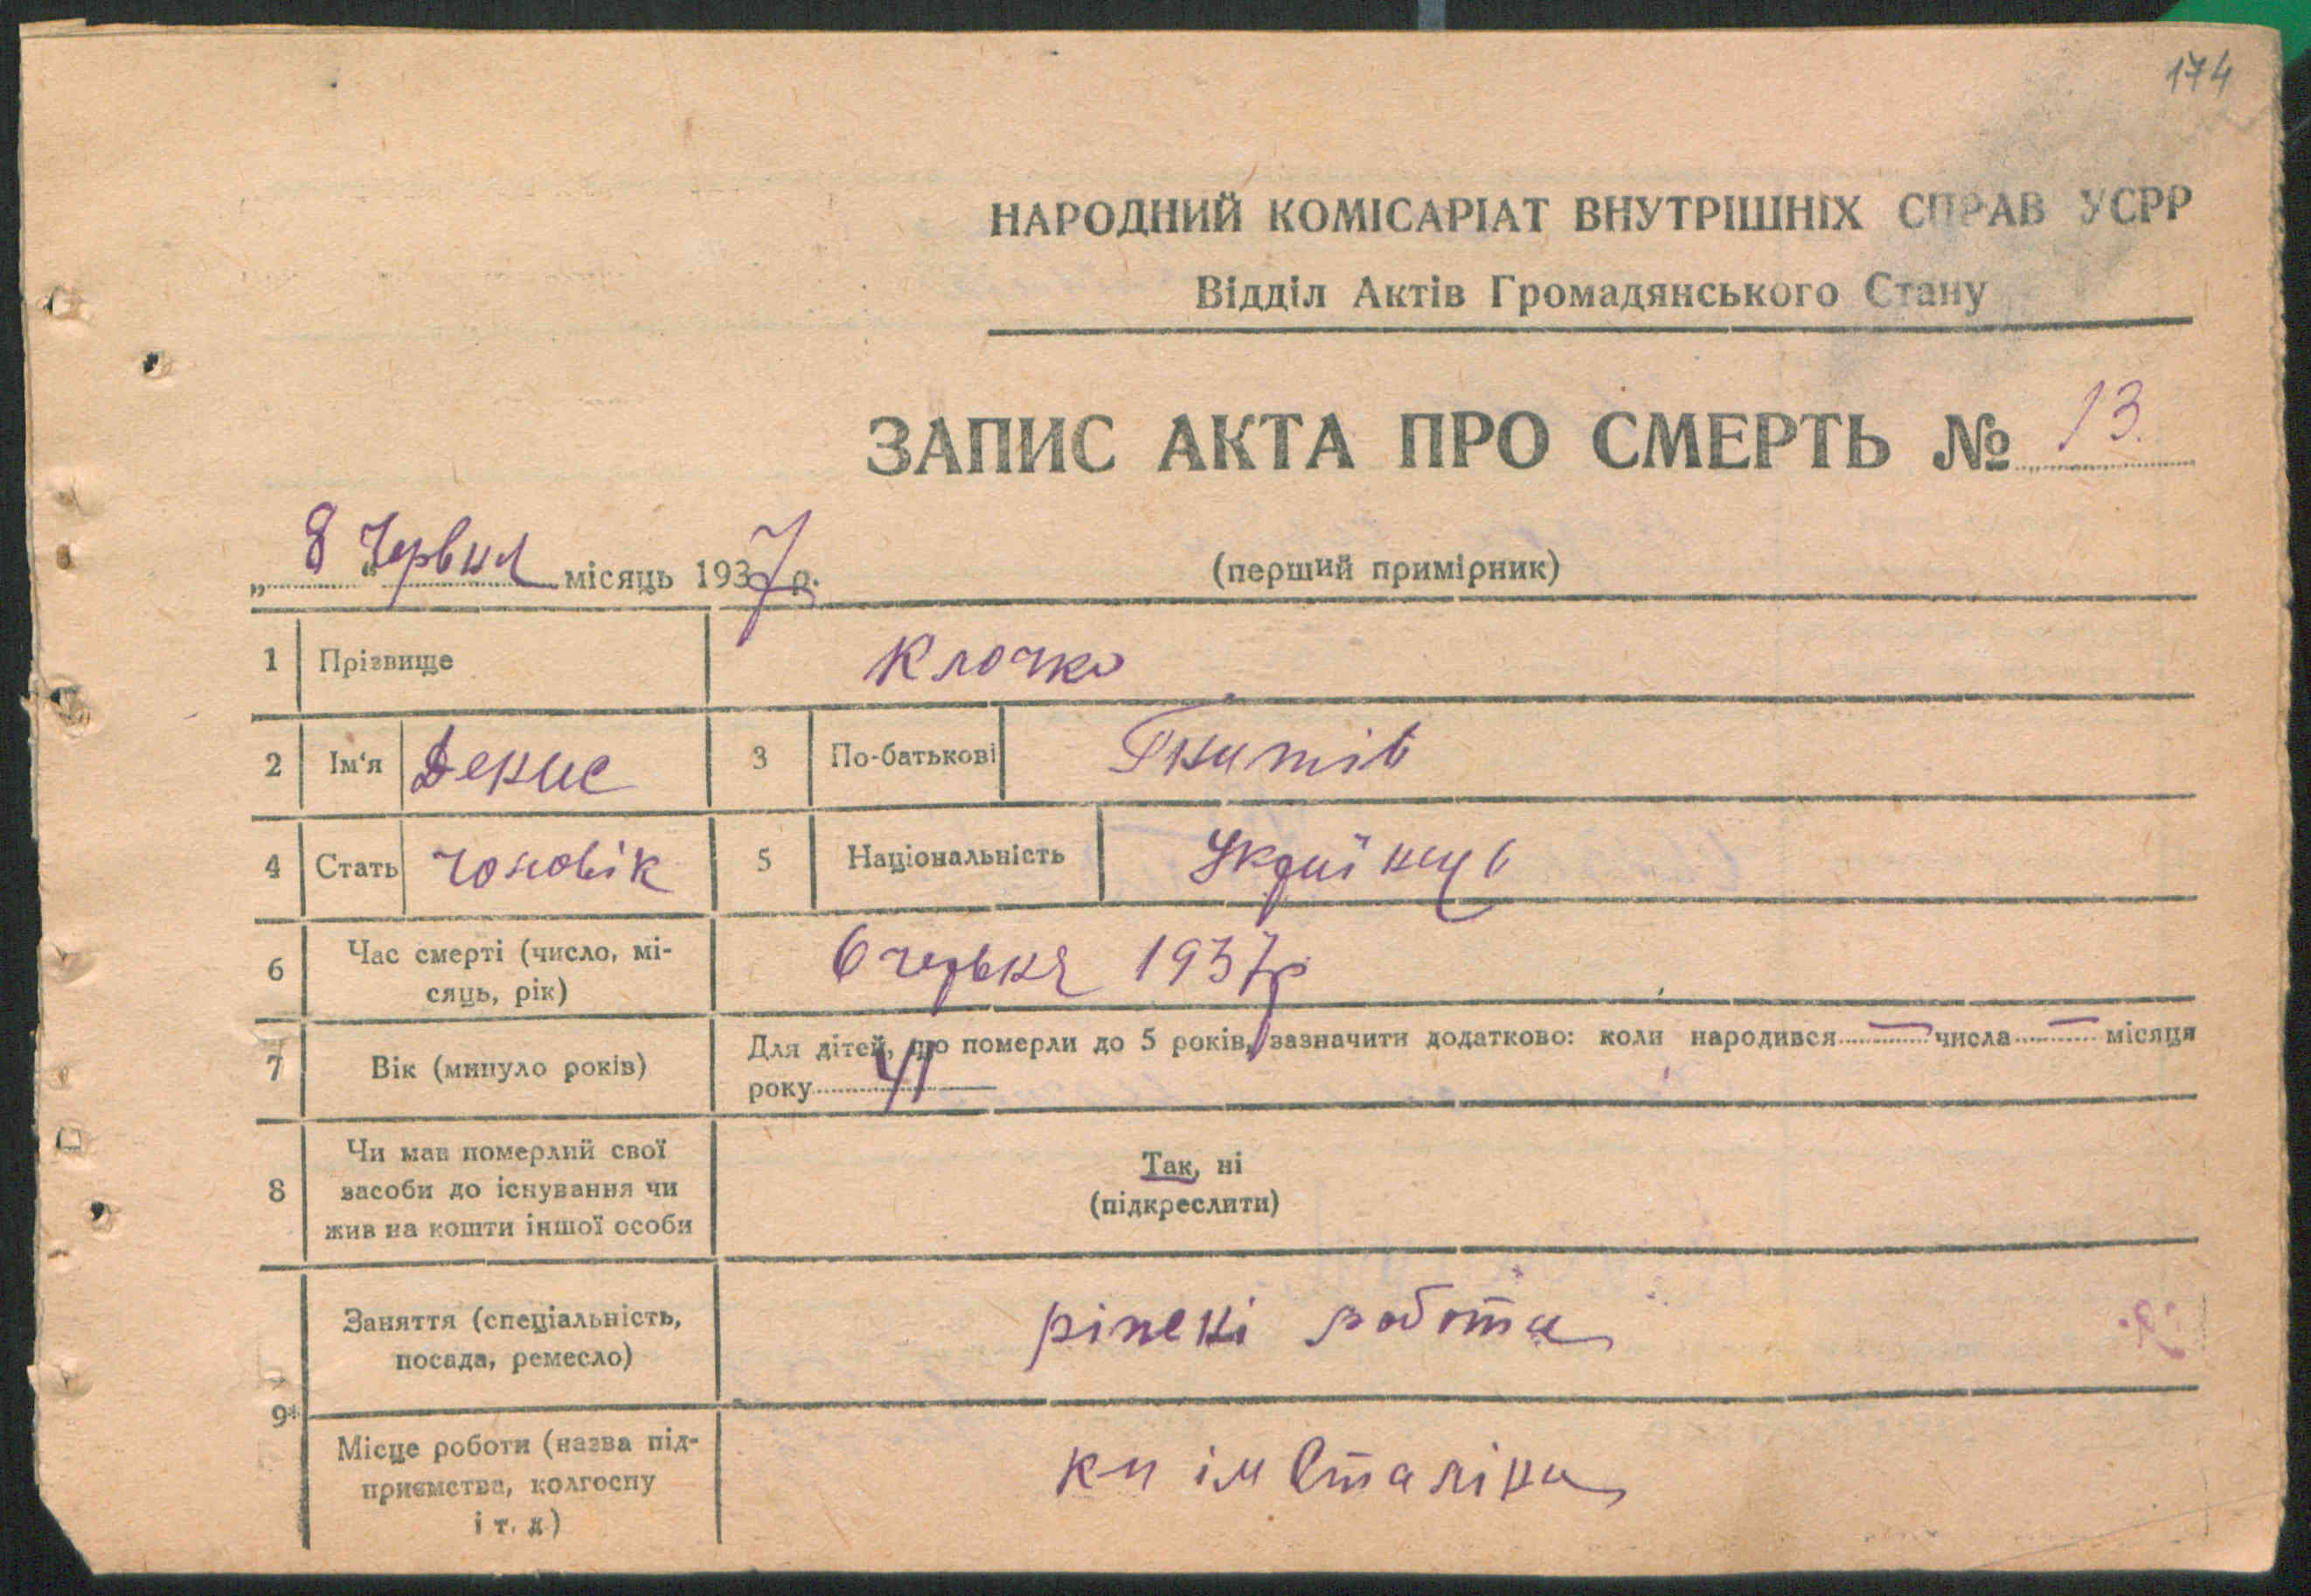 174
НАРОДНИЙ КОМІСАРІАТ ВНУТРІШНІХ СПРАВ УСРР
Відділ Актів Громадянського Стану
ЗАПИС АКТА ПРО СМЕРТЬ № 13.
„8“ Червня місяць 1937 р.
(перший примірник)
1 Прізвище Клочко
2 Ім'я Денис 3 По-батькові Гнатів
4 Стать Чоловік 5 Національність Українць
6 Час смерті (число, мі-
сяць, рік) 6 червня 1937р
7 Вік (минуло років) Для дітей, що померли до 5 років, зазначити додатково: коли народився — числа — місяця
року 41
8 Чи мав померлий свої
засоби до існування чи
жив на кошти іншої особи
Так, ні
(підкреслити)
9*
Заняття (спеціальність,
посада, ремесло) робота
Місце роботи (назва під-
приємства, колгоспу
і т. д.) ім Сталіна